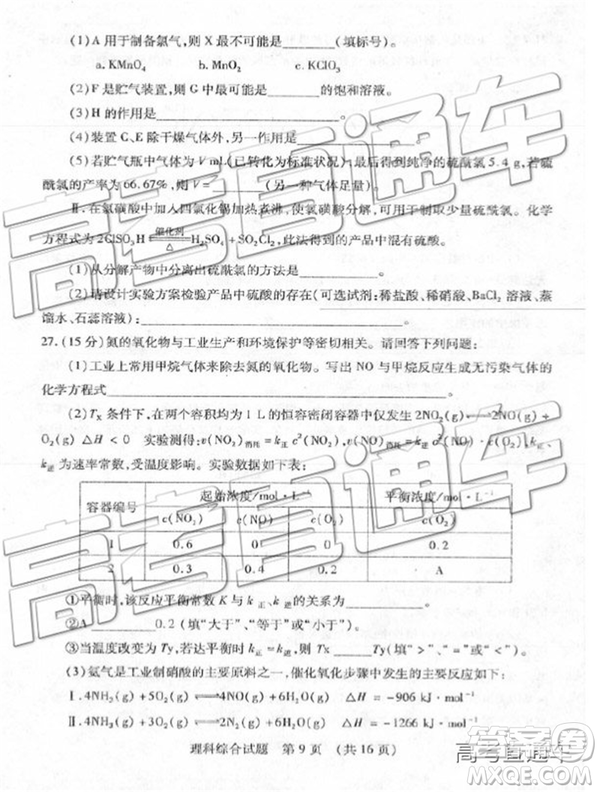 (1)A 用于制备氯气，则 X 最不可能是________(填标号)。
a. KMnO₄ b. MnO₂ c. KClO₃
(2)F 是贮气装置，则 G 中最可能是________的饱和溶液。
(3)H 的作用是________。
(4)装置 C、E 除干燥气体外，另一作用是________。
(5)若贮气瓶中气体为 V mL(已转化为标准状况)，最后得到纯净的硫酰氯 5.4 g，若硫
酰氯的产率为 66.67%，则 V=________(另一种气体足量)。
Ⅱ. 在氯磺酸中加入四氯化锡加热煮沸，使氯磺酸分解，可用于制取少量硫酰氯。化学
方程式为 2ClSO₃H 催化剂 △ H₂SO₄+SO₂Cl₂，此法得到的产品中混有硫酸。
(1)从分解产物中分离出硫酰氯的方法是________。
(2)请设计实验方案检验产品中硫酸的存在(可选试剂：稀盐酸、稀硝酸、BaCl₂ 溶液、蒸
馏水、石蕊溶液)：________。
27. (15 分)氮的氧化物与工业生产和环境保护等密切相关。请回答下列问题：
(1)工业上常用甲烷气体来除去氮的氧化物。写出 NO 与甲烷反应生成无污染气体的
化学方程式________
(2)Tx 条件下，在两个容积均为 1 L 的恒容密闭容器中仅发生 2NO₂(g)⇌2NO(g)+
O₂(g) △H＜0 实验测得：v(NO₂)消耗=k正 c²(NO₂)，v(NO)消耗=k逆 c²(NO)·c(O₂)，k正、
k逆 为速率常数，受温度影响。实验数据如下表：
容器编号 起始浓度/mol·L⁻¹ 平衡浓度/mol·L⁻¹
c(NO₂) c(NO) c(O₂) c(O₂)
1 0.6 0 0 0.2
2 0.4 0.4 0.2 A
①平衡时，该反应平衡常数 K 与 k正、k逆 的关系为________。
②A________0.2(填“大于”、“等于”或“小于”)。
③当温度改变为 Ty，若达平衡时 k正=k逆，则 Tx________Ty(填“＞”、“＜”或“=”)。
(3)氨气是工业制硝酸的主要原料之一，催化氧化步骤中发生的主要反应如下：
Ⅰ. 4NH₃(g)+5O₂(g)⇌4NO(g)+6H₂O(g) △H=−906 kJ·mol⁻¹
Ⅱ. 4NH₃(g)+3O₂(g)⇌2N₂(g)+6H₂O(g) △H=−1266 kJ·mol⁻¹
理科综合试题 第 9 页 (共 16 页)
高考直通车
高考直通车
高考直通车
高考直通车
答案圈
MXQE.COM